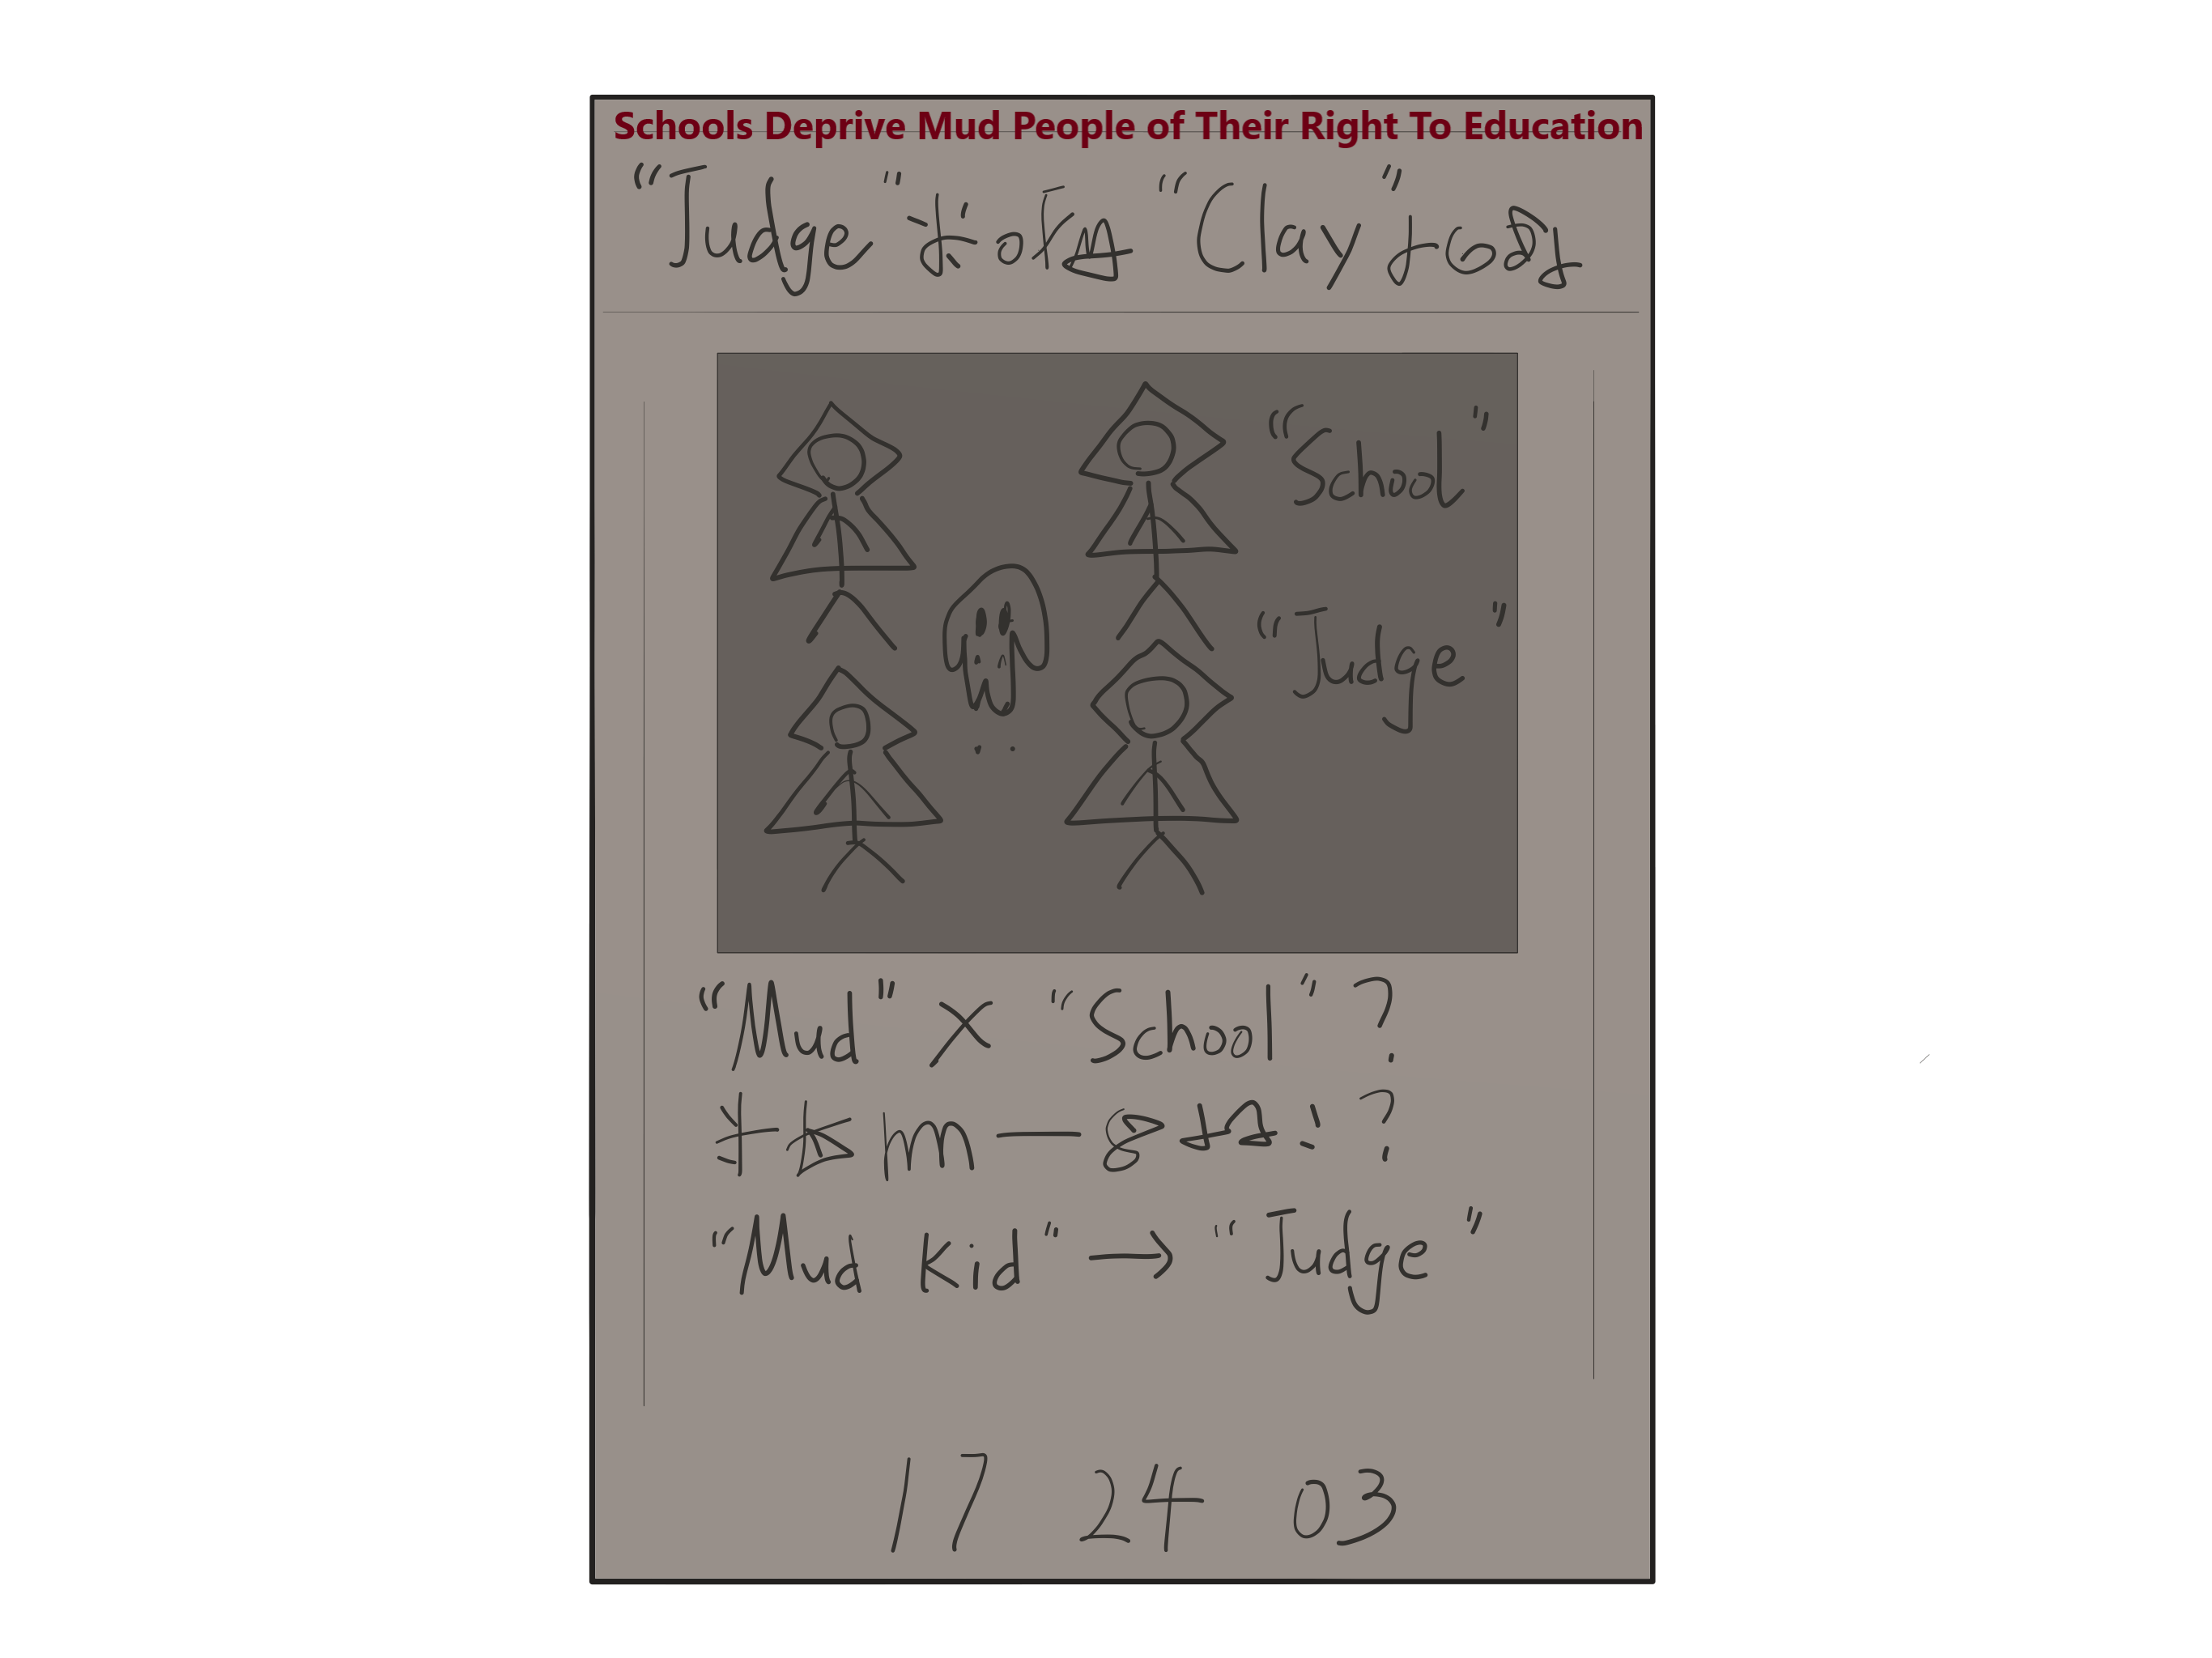 Schools Deprive Mud People of Their Right To Education
““Judge” “Clay”
“School”
“Judge”
“Mud” X “School” ?
?
“Mud Kid” → “Judge”
17 24 03